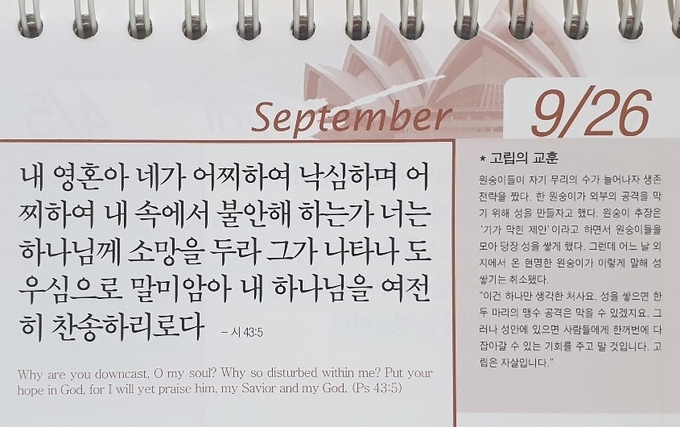 September
9/26
내 영혼아 네가 어찌하여 낙심하며 어
찌하여 내 속에서 불안해 하는가 너는
하나님께 소망을 두라 그가 나타나 도
우심으로 말미암아 내 하나님을 여전
히 찬송하리로다 - 시 43:5
Why are you downcast, O my soul? Why so disturbed within me? Put your
hope in God, for I will yet praise him, my Savior and my God. (Ps 43:5)
* 고립의 교훈
원숭이들이 자기 무리의 수가 늘어나자 생존
전략을 짰다. 한 원숭이가 외부의 공격을 막
기 위해 성을 만들자고 했다. 원숭이 추장은
'기가 막힌 제안'이라고 하면서 원숭이들을
모아 당장 성을 쌓게 했다. 그런데 어느 날 외
지에서 온 현명한 원숭이가 이렇게 말해 성
쌓기는 취소됐다.
"이건 하나만 생각한 처사요. 성을 쌓으면 한
두 마리의 맹수 공격은 막을 수 있겠지요. 그
러나 성안에 있으면 사람들에게 한꺼번에 다
잡아갈 수 있는 기회를 주고 말 것입니다. 고
립은 자살입니다."